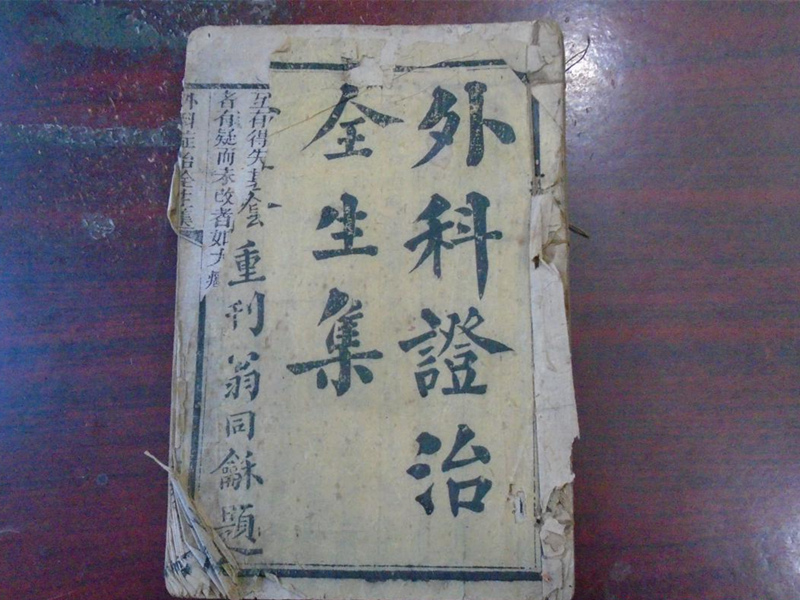 外科證治
全生集
重刊翁同龢題
互有得失其
者有疑而未改者如大
外科症治全生集